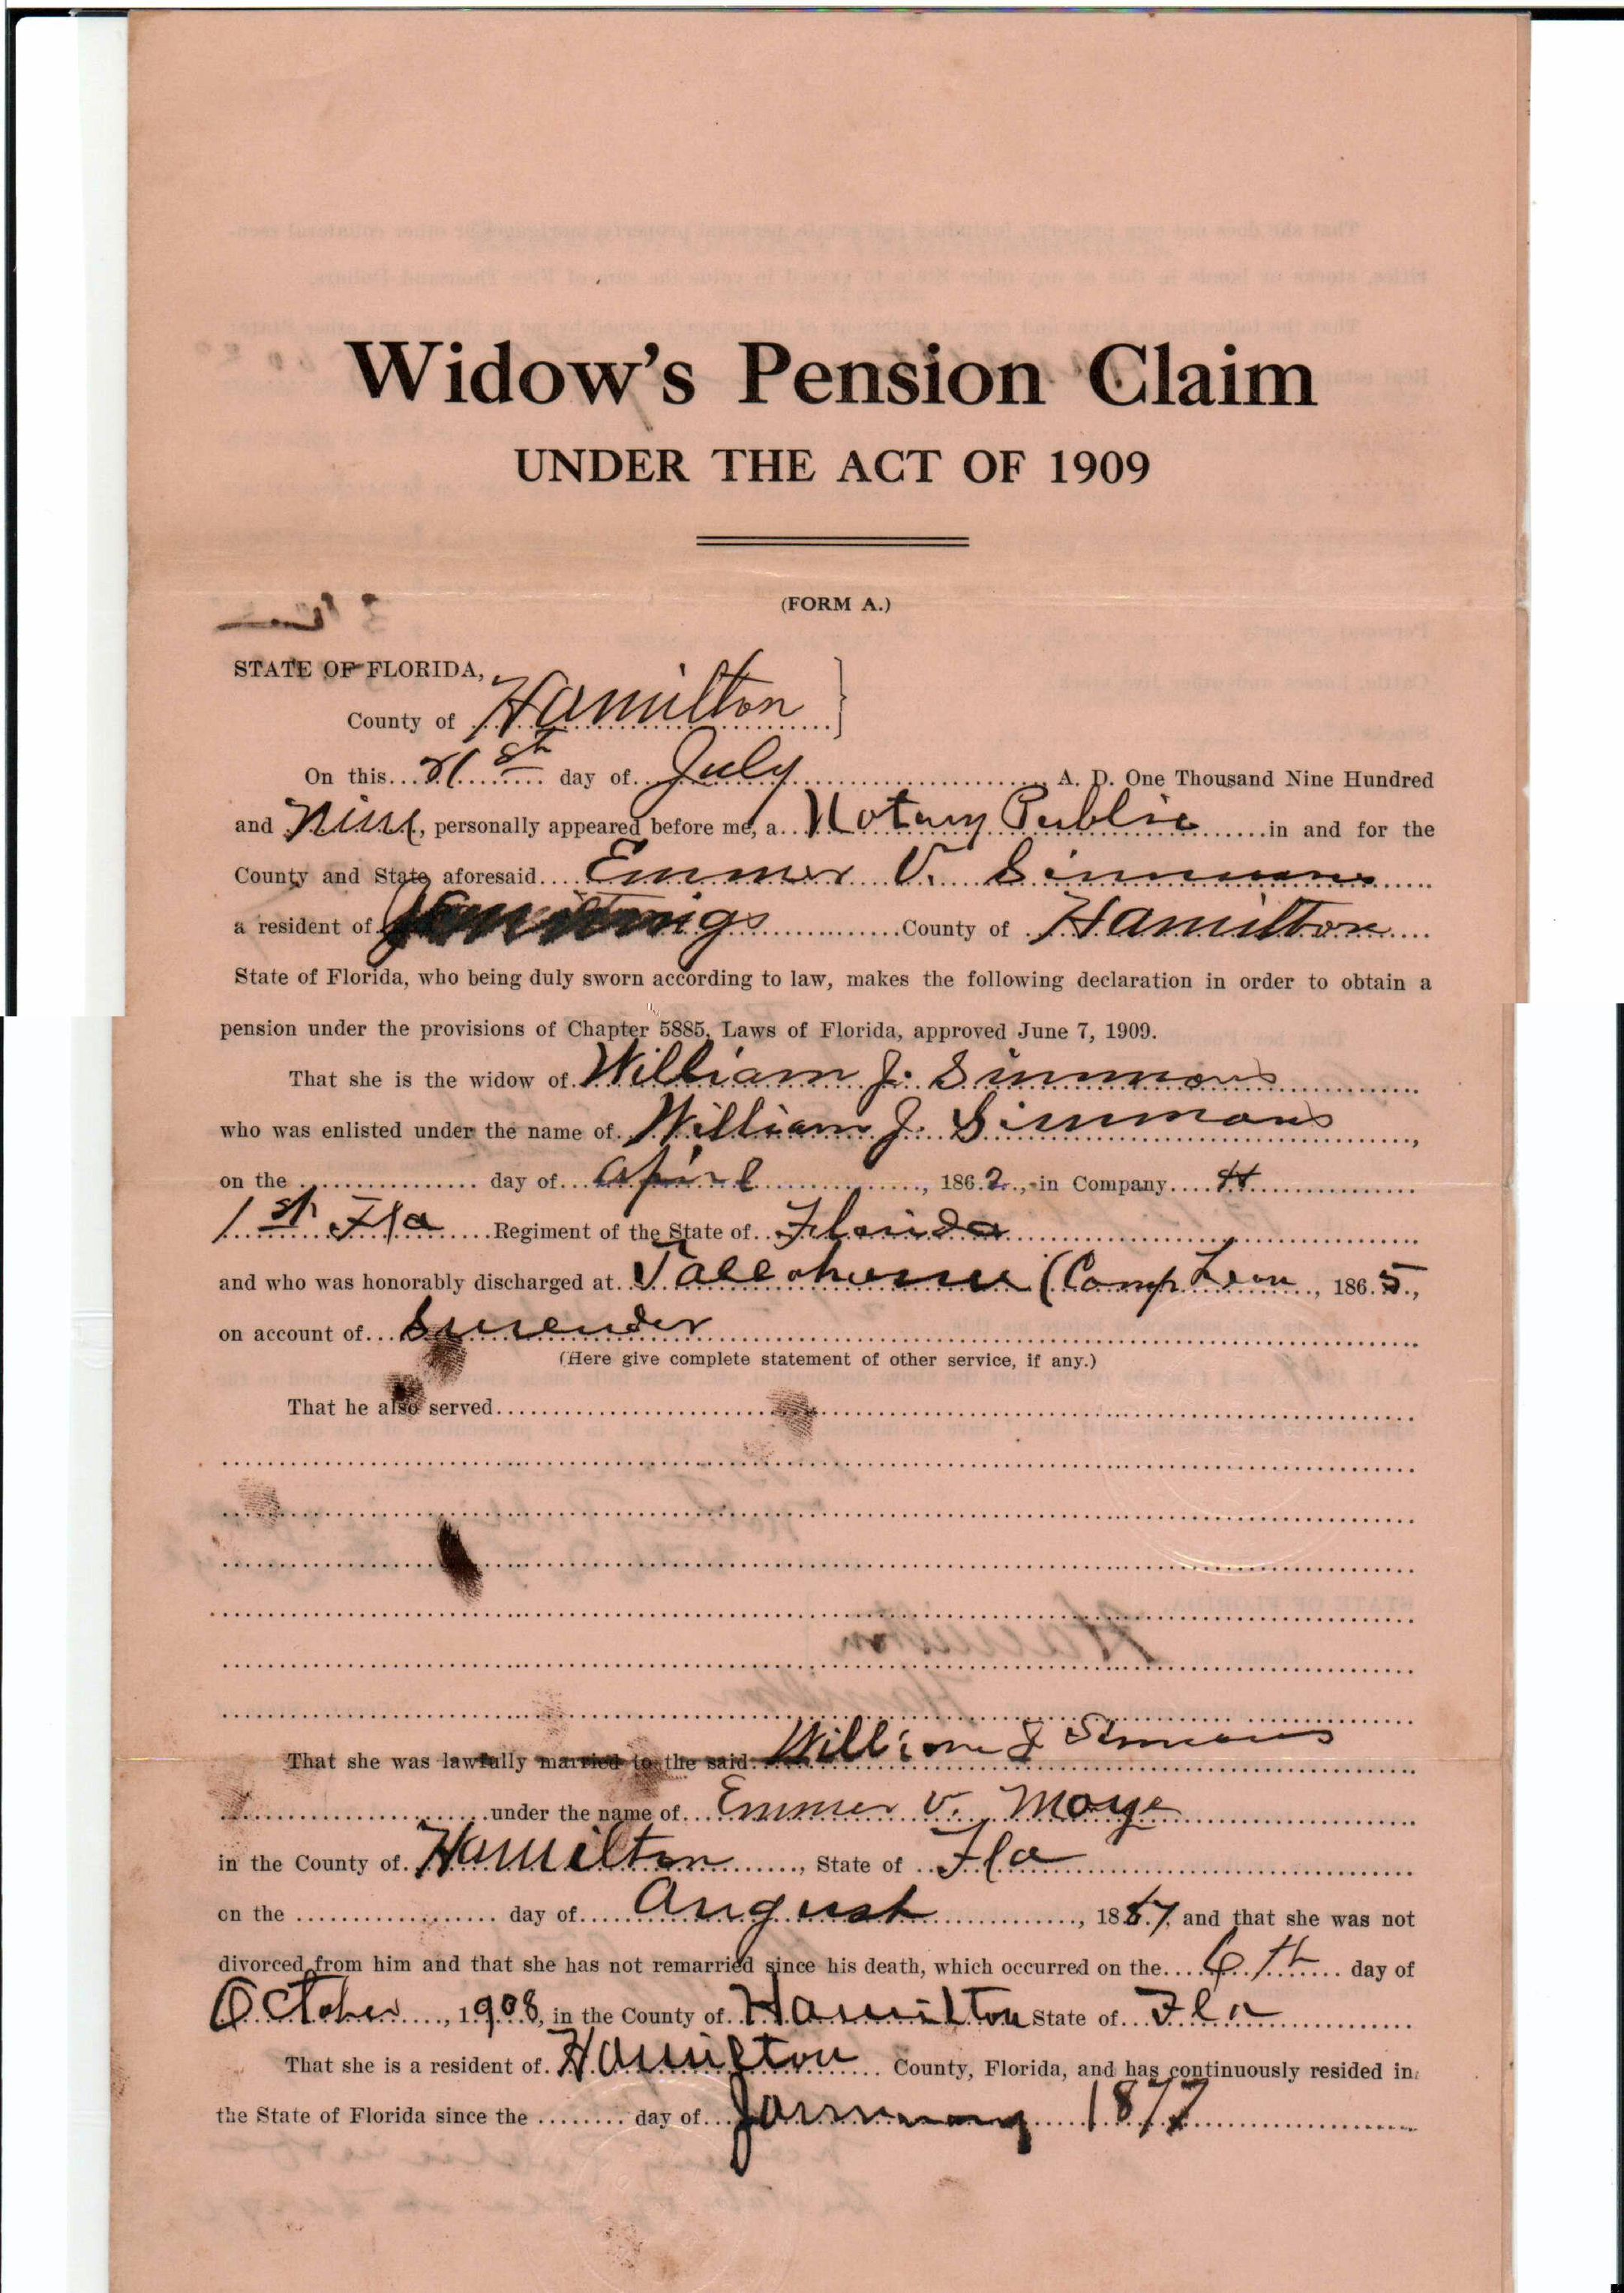 Widow's Pension Claim
UNDER THE ACT OF 1909
(FORM A.)
STATE OF FLORIDA,
County of Hamilton
On this 21st day of July A. D. One Thousand Nine Hundred
and Nine, personally appeared before me, a Notary Public in and for the
County and State aforesaid Emmer V. Simmons
a resident of Jennings County of Hamilton
State of Florida, who being duly sworn according to law, makes the following declaration in order to obtain a
pension under the provisions of Chapter 5885, Laws of Florida, approved June 7, 1909.
That she is the widow of William J. Simmons
who was enlisted under the name of William J. Simmons,
on the day of April, 1862, in Company H
1st Fla Regiment of the State of Florida
and who was honorably discharged at Tallahassee (Camp Leon, 1865,
on account of Surender
(Here give complete statement of other service, if any.)
That he also served
That she was lawfully married to the said William J Simmons
under the name of Emmer V. Moye
in the County of Hamilton, State of Fla
on the day of August, 18 7, and that she was not
divorced from him and that she has not remarried since his death, which occurred on the 6th day of
October, 1908, in the County of Hamilton State of Fla
That she is a resident of Hamilton County, Florida, and has continuously resided in
the State of Florida since the day of January 1877